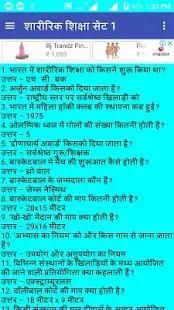 1:33 PM
शारीरिक शिक्षा सेट 1
Rj Trandz Pin...
₹ 1,099
snapdeal
1. भारत में शारीरिक शिक्षा को किसने शुरू किया था?
उत्तर – एच. सी. बक
2. अर्जुन अवार्ड किसको दिया जाता हैं?
उत्तर – राष्ट्रीय स्तर पर सर्वश्रेष्ठ खिलाड़ी को
3. भारत में महिला हॉकी क्लब की स्थापना कब हुई?
उत्तर – 1975
4. ओलम्पिक ध्वज में गोलों की संख्या कितनी होती है?
उत्तर – 5
5. द्रोणाचार्य अवार्ड किसको दिया जाता हैं?
उत्तर – सर्वश्रेष्ठ गुरू/शिक्षक
6. बास्केटबाल में मैच की शुरूआत कैसे होती है?
उत्तर – झो बाल
7. बास्केटबाल के जन्मदाता कौन है?
उत्तर – जेम्स नेस्मिथ
8. बास्केटबाल कोर्ट की माप कितनी होती है?
उत्तर – 28x15 मीटर
9. 'खो-खो' मैदान की माप क्या होती है?
उत्तर – 29x16 मीटर
10. 'अभ्यास का नियम' को और किस नाम से जाना जाता है?
उत्तर – उपयोग और अनुपयोग का नियम
11. विभिन्न संस्थानों के खिलाड़ियों के मध्य आयोजित की जाने वाली प्रतियोगिता क्या कहलाती हैं?
उत्तर – एक्स्ट्राम्यूरलस
12. वॉलीबाल कोर्ट की माप कितनी होती है?
उत्तर – 18 मीटर x 9 मीटर